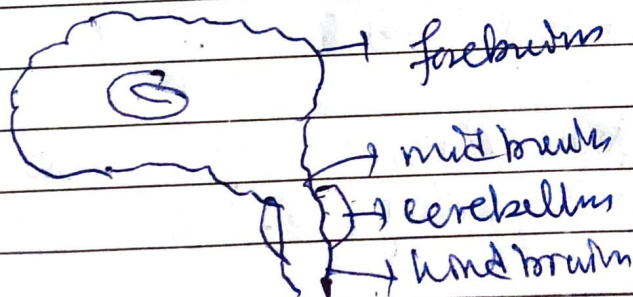 forebrain
midbrain
cerebellum
hindbrain